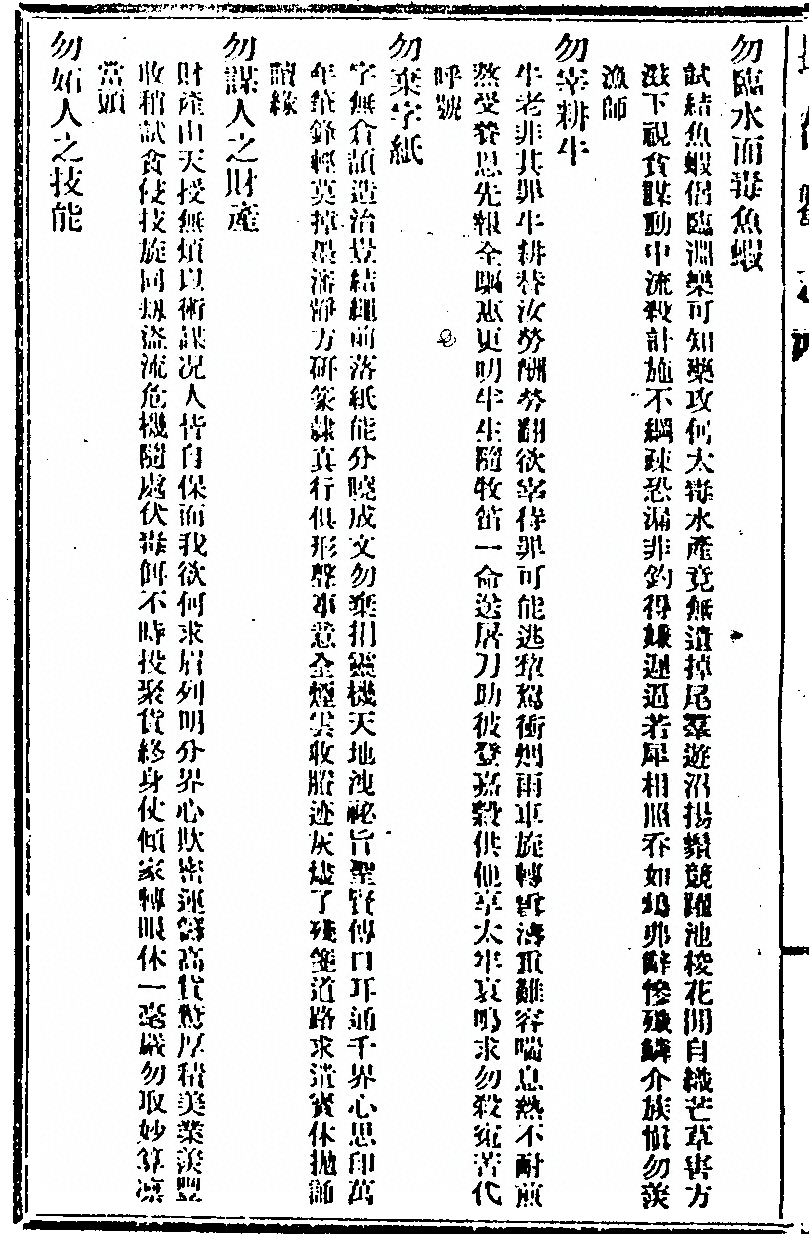 勿臨水而毒魚蝦
試結魚蝦侶臨淵樂可知藥攻何太毒水產竟無遺掉尾羣遊沼揚鬚競躍池梭花開自織芒草害方
滋下視貪謀動中流殺計施不綱疎恐漏非釣得嫌遲過若犀相照吞如鴆弗辭慘殲鱗介族愼勿羨
漁師
勿宰耕牛
牛老非其罪牛耕替汝勞酬勞翻欲宰待罪可能逃犂駕衝烟雨車旋轉雪濤重難容喘息熱不耐煎
熬受養恩先報全軀惠更叨半生隨牧笛一命送屠刀助彼登嘉穀供他享太牢哀鳴求勿殺寃苦代
呼號
勿棄字紙
字無倉頡造治豈結繩前落紙能分曉成文勿棄捐靈機天地洩祕旨聖賢傳口耳通千界心思印萬
年筆鋒輕莫掉墨瀋淨方研篆隸真行俱形聲事意全煙雲收賸迹灰燼了殘箋道路求遺寶休拋誦
讀緣
勿謀人之財產
財產由天授無煩以術謀况人皆自保而我欲何求眉列明分界心欺密運籌高貲驚厚積美業羨豐
收稍試食侵技旋同刼盜流危機隨處伏毒餌不時投聚貨終身仗傾家轉眼休一毫嚴勿取妙算凛
當頭
勿妬人之技能